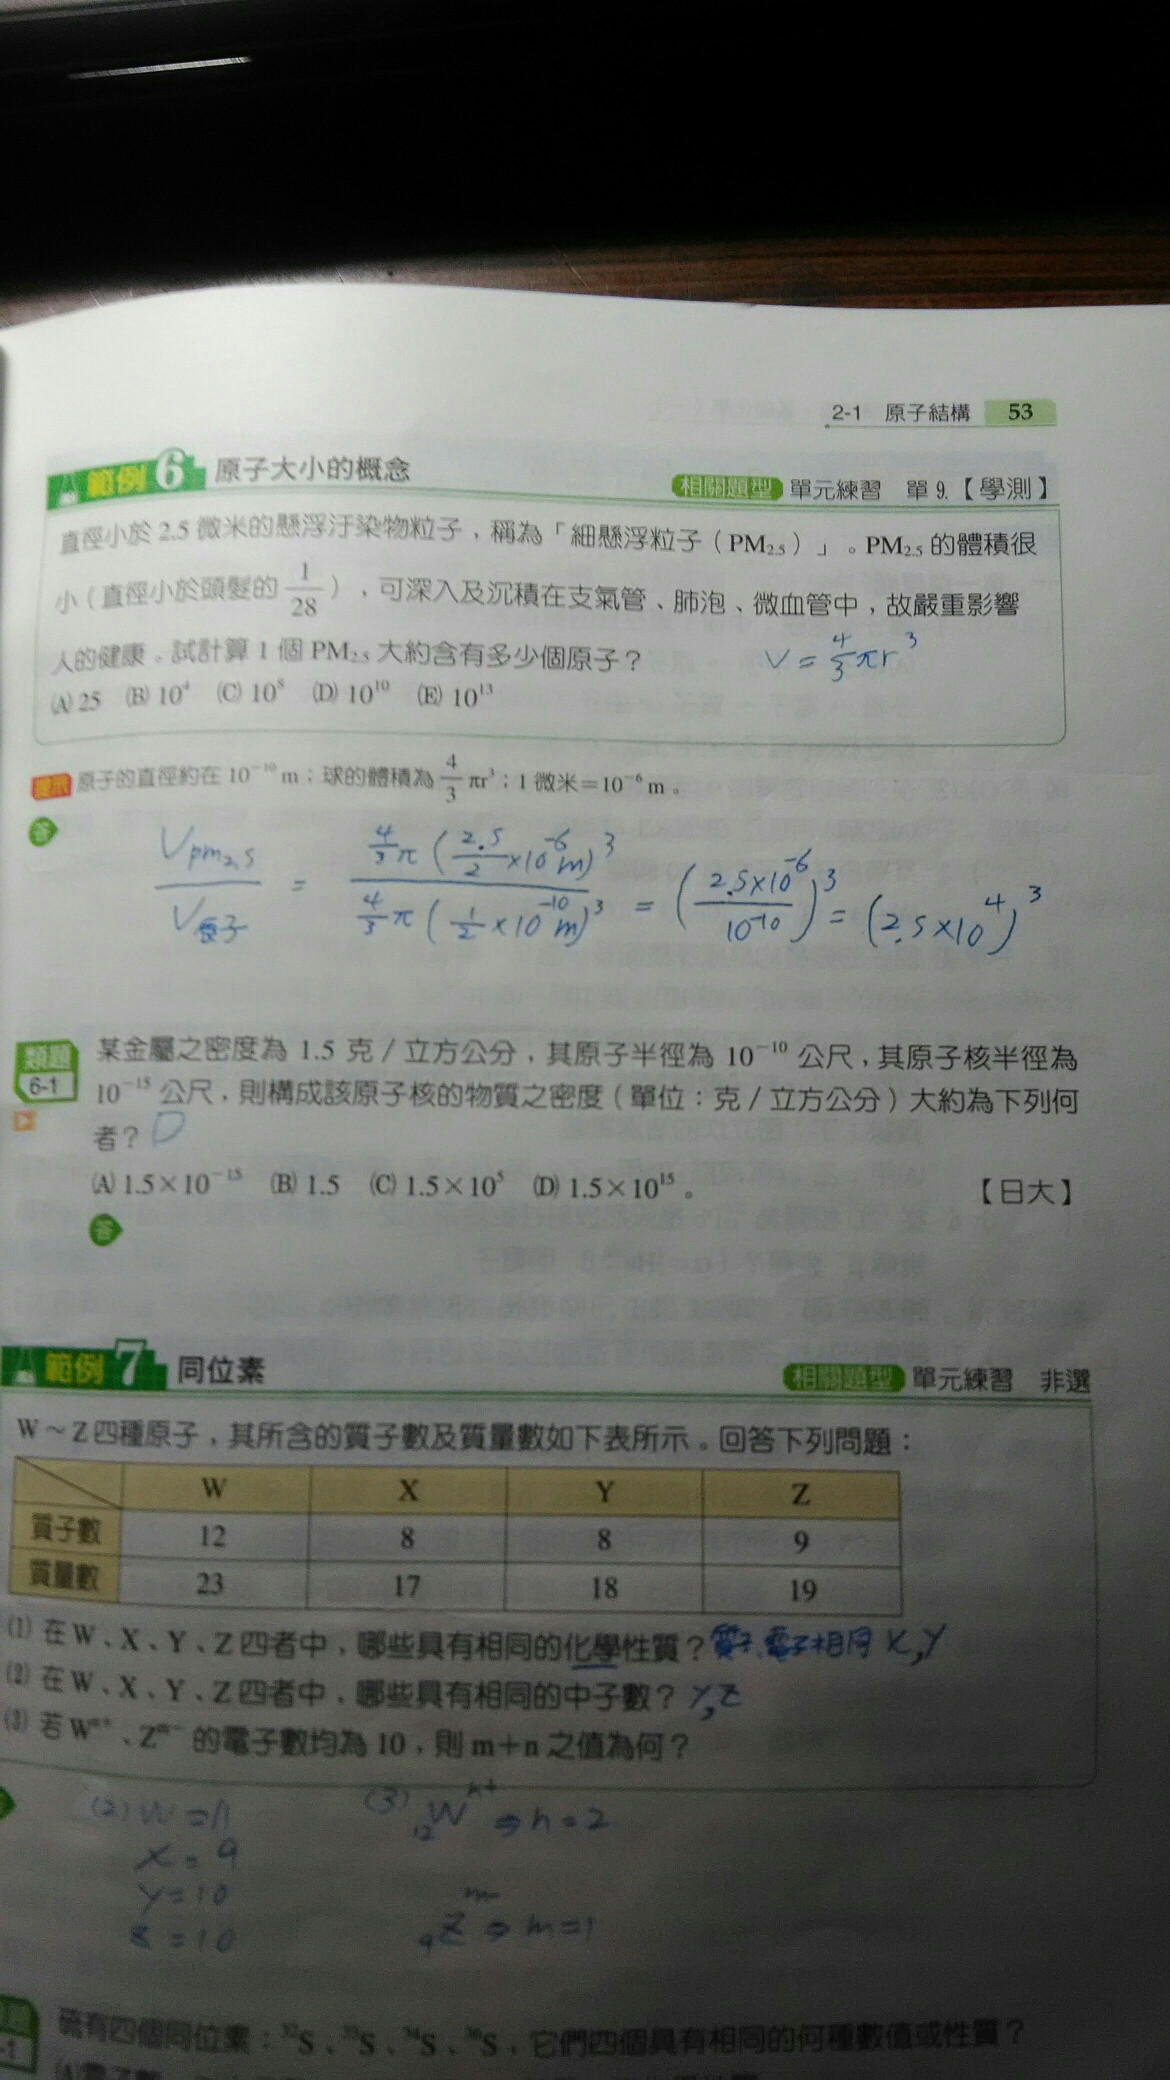 2-1 原子結構 53
範例6 原子大小的概念 相關題型 單元練習 單9.【學測】
直徑小於 2.5 微米的懸浮汙染物粒子，稱為「細懸浮粒子（PM₂.₅）」。PM₂.₅ 的體積很
小（直徑小於頭髮的 1/28），可深入及沉積在支氣管、肺泡、微血管中，故嚴重影響
人的健康。試計算 1 個 PM₂.₅ 大約含有多少個原子？ V = 4/3 πr³
(A) 25 (B) 10⁴ (C) 10⁸ (D) 10¹⁰ (E) 10¹³
提示 原子的直徑約在 10⁻¹⁰ m；球的體積為 4/3 πr³；1 微米＝10⁻⁶ m。
答
Vpm₂.₅ / V原子 = 4/3 π (2.5/2 ×10⁻⁶ m)³ / 4/3 π (1/2 ×10⁻¹⁰ m)³ = (2.5×10⁻⁶ / 10⁻¹⁰)³ = (2.5×10⁴)³
類題 6-1 某金屬之密度為 1.5 克／立方公分，其原子半徑為 10⁻¹⁰ 公尺，其原子核半徑為
10⁻¹⁵ 公尺，則構成該原子核的物質之密度（單位：克／立方公分）大約為下列何
者？ D
(A) 1.5×10⁻¹⁵ (B) 1.5 (C) 1.5×10⁵ (D) 1.5×10¹⁵。 【日大】
答
範例7 同位素 相關題型 單元練習 非選
W～Z 四種原子，其所含的質子數及質量數如下表所示。回答下列問題：
W X Y Z
質子數 12 8 8 9
質量數 23 17 18 19
(1) 在 W、X、Y、Z 四者中，哪些具有相同的化學性質？ 質子、電子相同 X,Y
(2) 在 W、X、Y、Z 四者中，哪些具有相同的中子數？ Y,Z
(3) 若 Wⁿ⁺、Zᵐ⁻ 的電子數均為 10，則 m＋n 之值為何？
(2) W = 11 (3) ₁₂Wⁿ⁺ ⇒ n = 2
X = 9
Y = 10
Z = 10 ₉Zᵐ⁻ ⇒ m = 1
硫有四個同位素：³²S、³³S、³⁴S、³⁶S，它們四個具有相同的何種數值或性質？